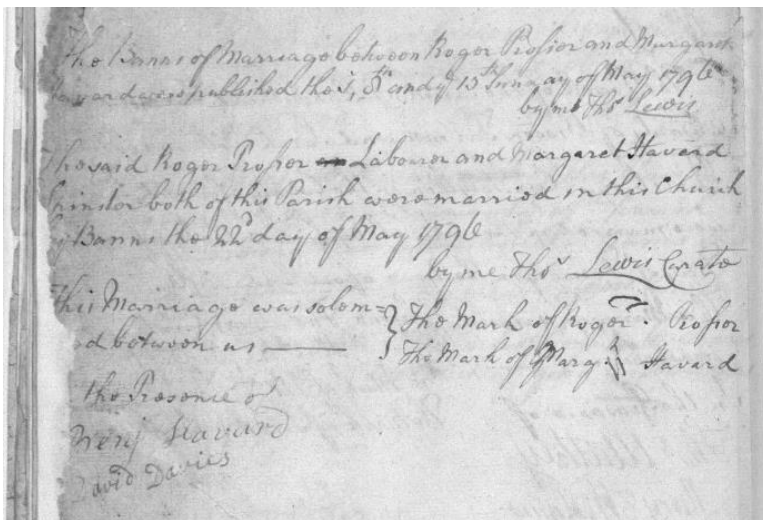 The Banns of Marriage between Roger Prosser and Margaret
Havard were published the 1, 8th and y 15th Sunday of May 1796
by me Thos Lewis
The said Roger Prosser Labourer and Margaret Havard
Spinster both of this Parish were married in this Church
by Banns the 22d day of May 1796
by me Thos Lewis Curate
This Marriage was solem=
ed between us
The Mark of Roger Prosser
The Mark of Marg Havard
the Presence of
Havard
David Davies